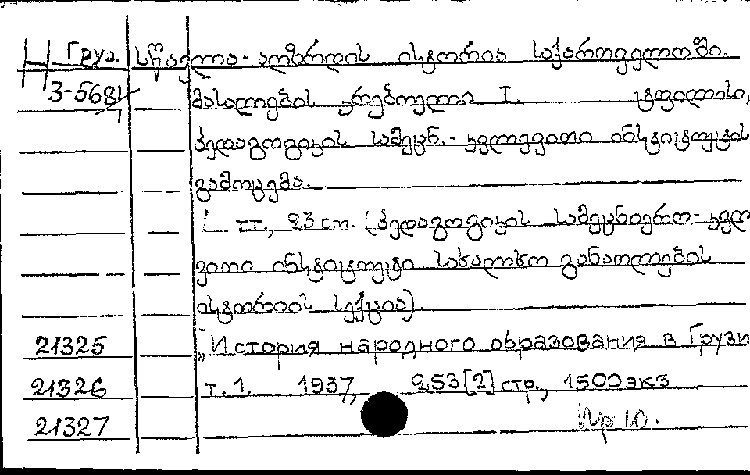 Н Груз. სწავლა-აღზრდის ისტორია საქართველოში.
3-5681 მასალების კრებული I. ტფილისი,
პედაგოგიკის სამეცნ.-კვლევითი ინსტიტუტის
გამოცემა.
23 см. (პედაგოგიკის სამეცნიერო-კვლე
ვითი ინსტიტუტი სახალხო განათლების
ისტორიის სექცია).
21325 „История народного образования в Грузи
21326 т.1. 1937, 253[2] стр., 1500 экз
21327 Кр 10.